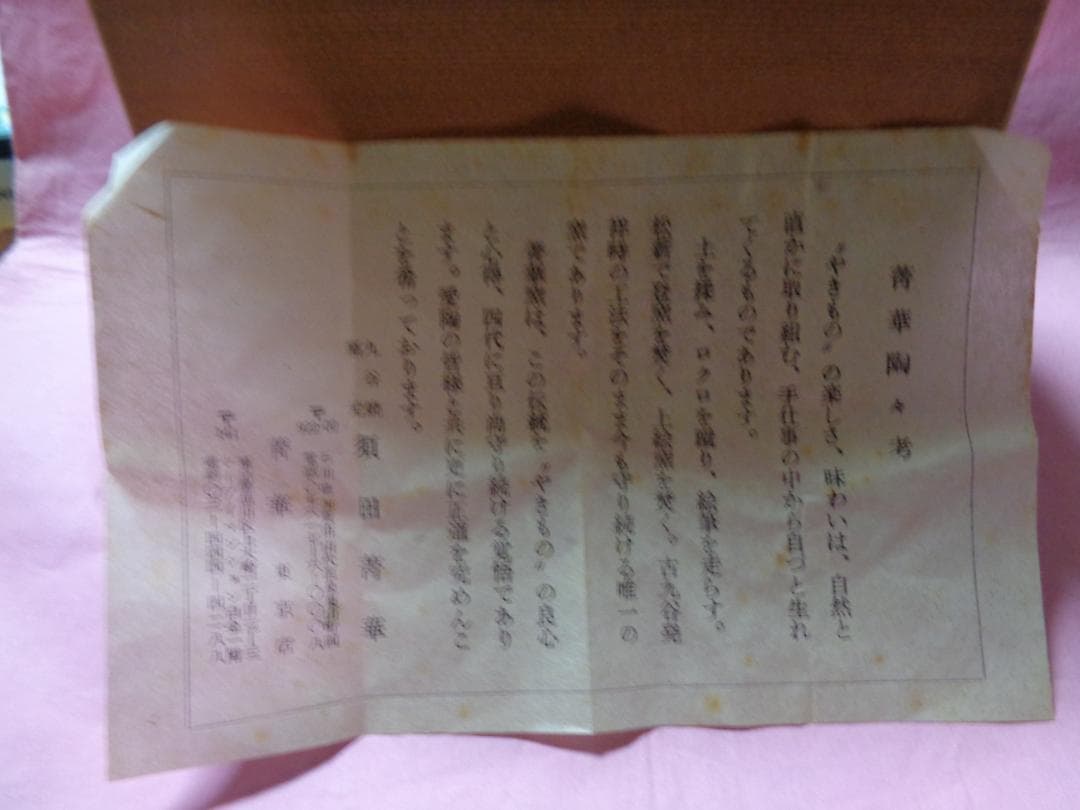 菁華陶々考
〝やきもの〟の楽しさ、味わいは、自然と
直かに取り組む、手仕事の中から自づと生れ
でくるものであります。
土を揉み、ロクロを蹴り、絵筆を走らす。
松薪で登窯を焚く、上絵窯を焚く。古九谷発
祥時の工法をそのまま今も守り続ける唯一の
窯であります。
菁華窯は、この伝統を〝やきもの〟の良心
と心得、四代に亘り尚守り続ける覚悟であり
ます。愛陶の皆様と共に更に正道を究めんこ
とを希っております。
九谷焼
須田菁華
菁華東京店